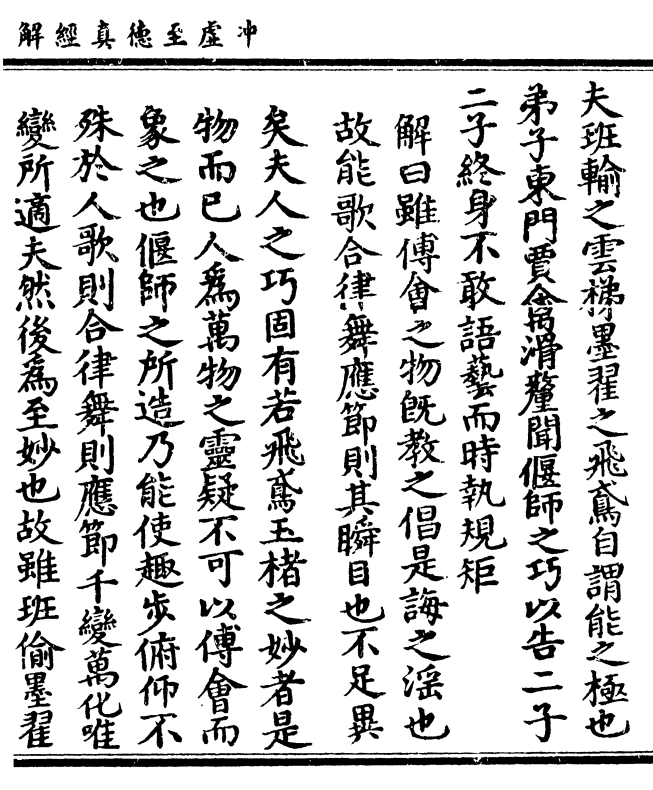 冲虛至德真經解
夫班輸之雲梯墨翟之飛鳶自謂能之極也
弟子東門賈禽滑釐聞偃師之巧以告二子
二子終身不敢語藝而時執規矩
解曰雖傅會之物旣教之倡是誨之淫也
故能歌合律舞應節則其瞬目也不足異
矣夫人之巧固有若飛鳶玉楮之妙者是
物而已人爲萬物之靈疑不可以傅會而
象之也偃師之所造乃能使趣步俯仰不
殊於人歌則合律舞則應節千變萬化唯
變所適夫然後爲至妙也故雖班偷墨翟